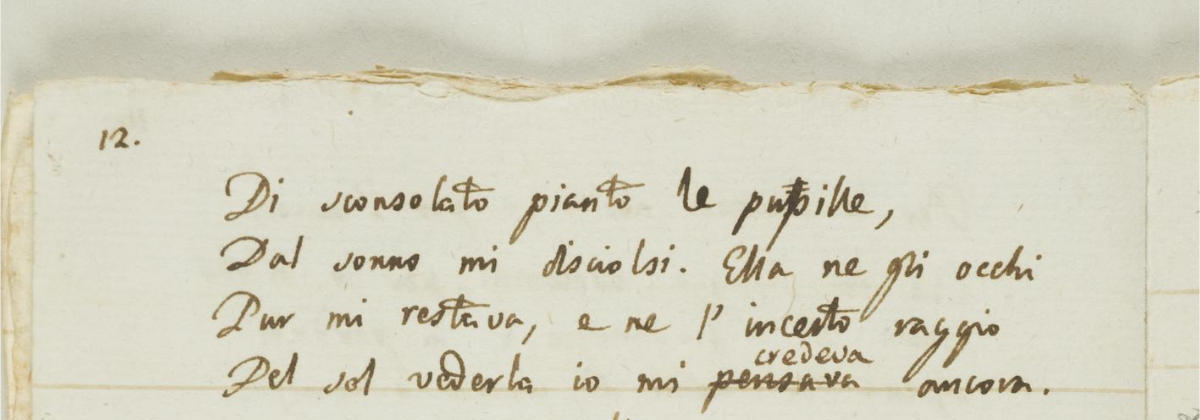 12.
Di sconsolato pianto le pupille,
Dal sonno mi disciolsi. Ella ne gli occhi
Pur mi restava, e ne l' incerto raggio
credeva
Del sol vederla io mi pensava ancora.